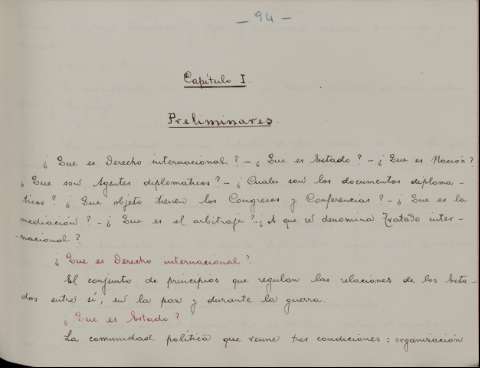 - 94 -
Capítulo I
Preliminares.
¿ Que es Derecho internacional ? - ¿ Que es Estado ? - ¿ Que es Nación ?
¿ Que son Agentes diplomáticos ? - ¿ Cuales son los documentos diploma-
ticos ? ¿ Que objeto tienen los Congresos y Conferencias ? - ¿ Que es la
mediación ? - ¿ Que es el arbitraje ? - ¿ A que se denomina Tratado inter-
-nacional ?
¿ Que es Derecho internacional ?
El conjunto de principios que regulan las relaciones de los Esta-
dos entre sí, en la paz y durante la guerra.
¿ Que es Estado ?
La comunidad política que reune tres condiciones : organización